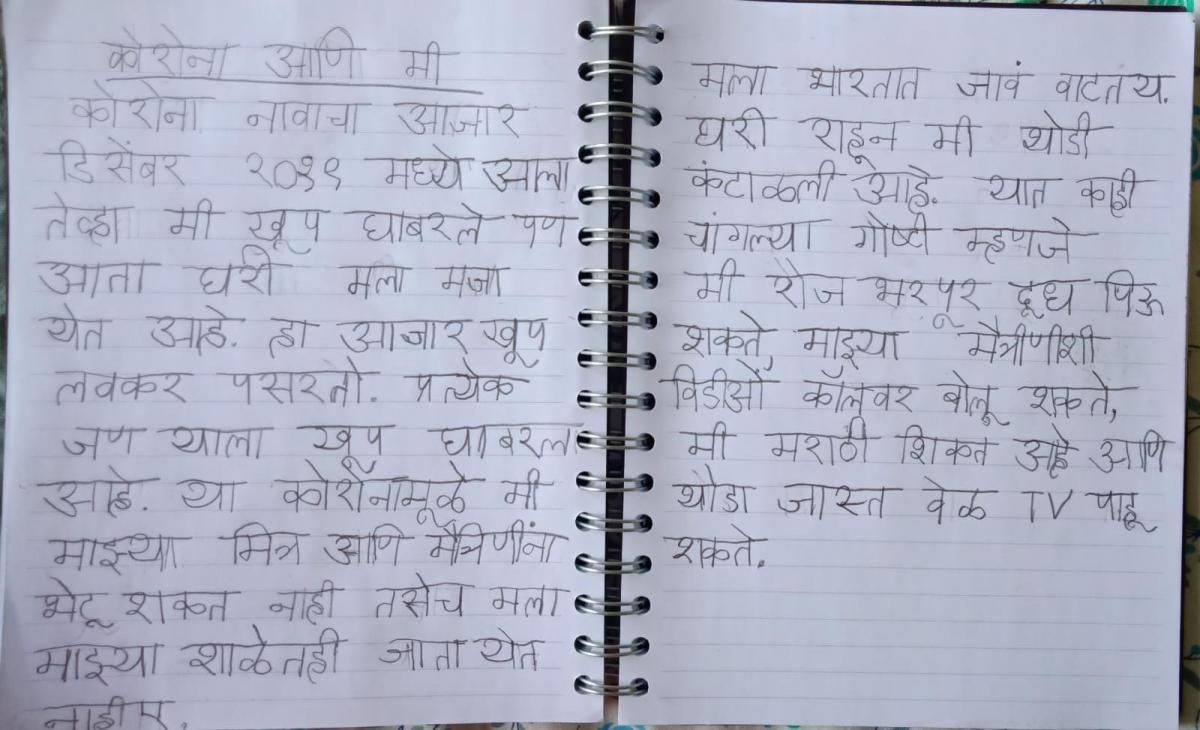 कोरोना आणि मी
कोरोना नावाचा आजार
डिसेंबर २०१९ मध्ये आला
तेव्हा मी खूप घाबरले पण
आता घरी मला मजा
येत आहे. हा आजार खूप
लवकर पसरतो. प्रत्येक
जण याला खूप घाबरला
आहे. या कोरोनामूळे मी
माझ्या मित्र आणि मैत्रिणींना
भेटू शकत नाही तसेच मला
माझ्या शाळेतही जाता येत
नाहीए.
मला भारतात जावं वाटतय.
घरी राहून मी थोडी
कंटाळली आहे. यात काही
चांगल्या गोष्टी म्हणजे
मी रोज भरपूर दूध पिऊ
शकते, माझ्या मैत्रीणीशी
विडीओ कॉलवर बोलू शकते,
मी मराठी शिकत आहे आणि
थोडा जास्त वेळ TV पाहू
शकते.